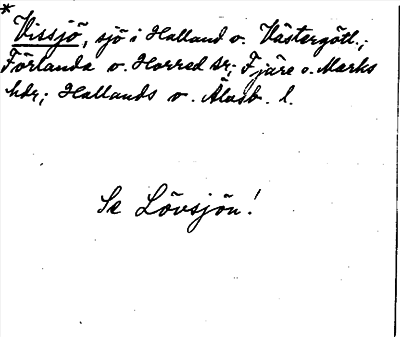 * Vissjö, sjö i Halland o. Västergötl.;
Förlanda o. Horred sr; Fjäre o. Marks
hdr; Hallands o. Älvsb. l.
Se Lövsjön!